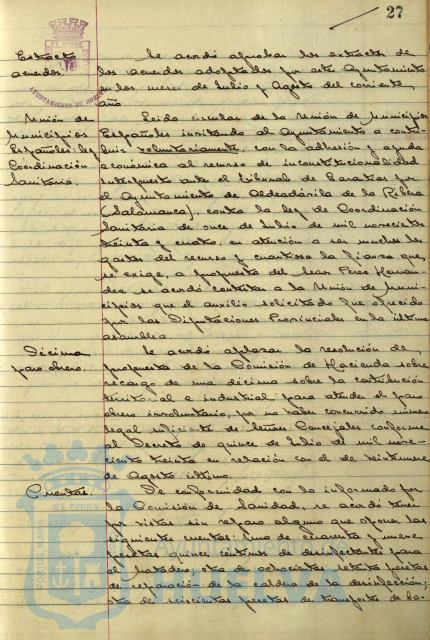 27
Extracto
acuerdos.
Se acordó aprobar los extractos de
los acuerdos adoptados por este Ayuntamiento
en los meses de Julio y Agosto del corriente
año
Unión de
Municipios
Españoles: ley
Coordinación
Sanitaria.
Leida circular de la Unión de Municipios
Españoles invitando al Ayuntamiento a contri-
buir voluntariamente, con la adhesión y ayuda
económica al recurso de inconstitucionalidad
interpuesto ante el Tribunal de Garantías por
el Ayuntamiento de Aldeadávila de la Ribera
(Salamanca), contra la ley de Coordinación
Sanitaria de once de Julio de mil novecientos
treinta y cuatro, en atención a ser muchos los
gastos del recurso y cuantiosa la fianza que
se exige, a propuesta del Señor Perez Hernan-
dez se acordó contestar a la Unión de Muni-
cipios que el auxilio solicitado fue ofrecido
por las Diputaciones Provinciales en la última
asamblea.
Décima
paro obrero.
Se acordó aplazar la resolución de
propuesta de la Comisión de Hacienda sobre
recargo de una décima sobre la contribución
territorial e industrial para atender el paro
obrero involuntario, por no haber concurrido número
legal suficiente de Señores Concejales conforme
al Decreto de quince de Julio de mil nove-
ciento treinta en relación con el de veintinueve
de Agosto último.
Cuentas.
De conformidad con lo informado por
la Comisión de Sanidad, se acordó tener
por vistas sin reparo alguno que oponer las
siguientes cuentas: una de cuarenta y nueve
pesetas quince centimos de desinfectantes para
el Matadero, otra de ochocientas setenta pesetas
de reparación de la caldera de la desinfección;
otra de seiscientas pesetas de transporte de ba-